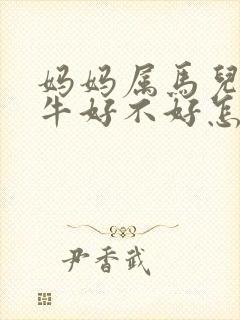 妈妈属馬兒
牛好不好怎
尹香武